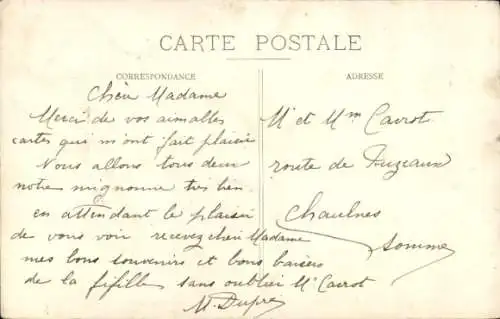 CARTE POSTALE
CORRESPONDANCE
Chère Madame
Merci de vos aimables
cartes qui m'ont fait plaisir
Nous allons tous deux
notre mignonne très bien
en attendant le plaisir
de vous voir recevez chère Madame
mes bons souvenirs et bons baisers
de la fifille sans oublier Mr Cavrot
M. Dupré
ADRESSE
Mr et Mme Cavrot
route de Puzeaux
Chaulnes
Somme